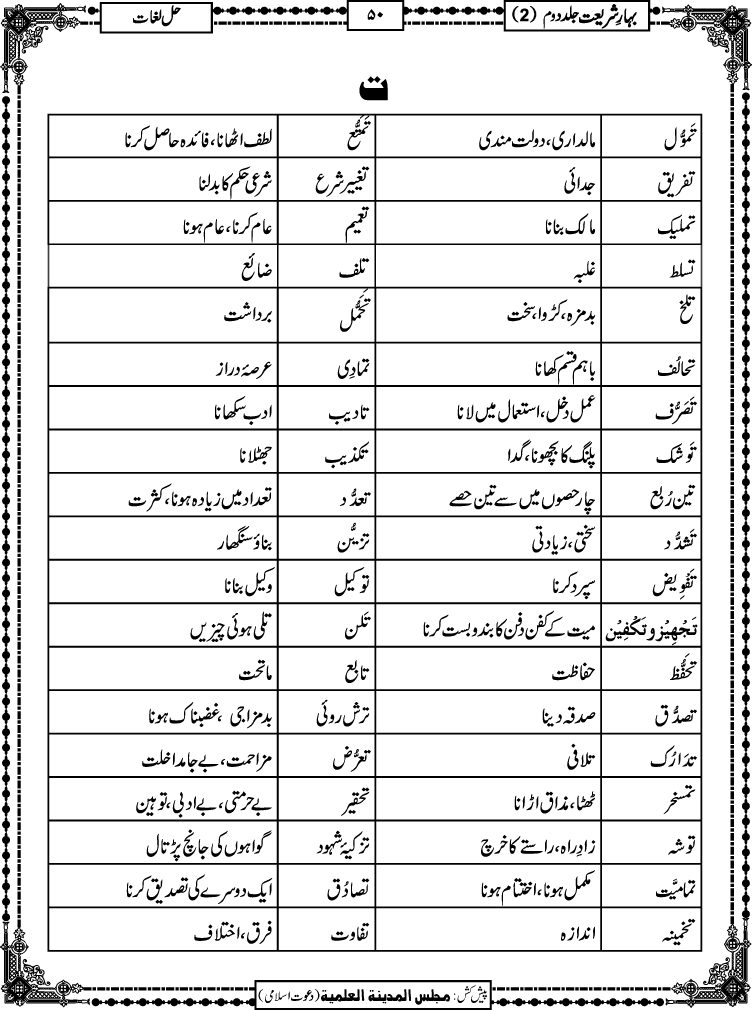 بہارِ شریعت جلد دوم (2)
۵۰
حل لغات
ت
تَمَوُّل مالداری، دولت مندی تَمَتُّع لطف اٹھانا، فائدہ حاصل کرنا
تفریق جدائی تغییرِ شرع شرعی حکم کا بدلنا
تملیک مالک بنانا تعمیم عام کرنا، عام ہونا
تسلط غلبہ تلف ضائع
تلخ بدمزہ، کڑوا، سخت تَحَمُّل برداشت
تحالُف باہم قسم کھانا تمادِی عرصۂ دراز
تَصَرُّف عمل دخل، استعمال میں لانا تادیب ادب سکھانا
تَوشک پلنگ کا بچھونا، گدا تکذیب جھٹلانا
تین رُبع چار حصوں میں سے تین حصے تعدُّد تعداد میں زیادہ ہونا، کثرت
تَشدُّد سختی، زیادتی تزیُّن بناؤ سنگھار
تَفْوِیض سپرد کرنا توکیل وکیل بنانا
تَجْہِیْز و تَکْفِیْن میت کے کفن دفن کا بندوبست کرنا تَلن تلی ہوئی چیزیں
تحَفُّظ حفاظت تابع ماتحت
تصدُّق صدقہ دینا ترش روئی بدمزاجی، غضبناک ہونا
تدَارُک تلافی تعرُّض مزاحمت، بے جا مداخلت
تمسخر ٹھٹا، مذاق اڑانا تحقیر بے حرمتی، بے ادبی، توہین
توشہ زادِ راہ، راستے کا خرچ تزکیۂ شہود گواہوں کی جانچ پڑتال
تمامیَّت مکمل ہونا، اختتام ہونا تصادُق ایک دوسرے کی تصدیق کرنا
تخمینہ اندازہ تفاوت فرق، اختلاف
پیش کش: مجلس المدینۃ العلمیۃ (دعوت اسلامی)